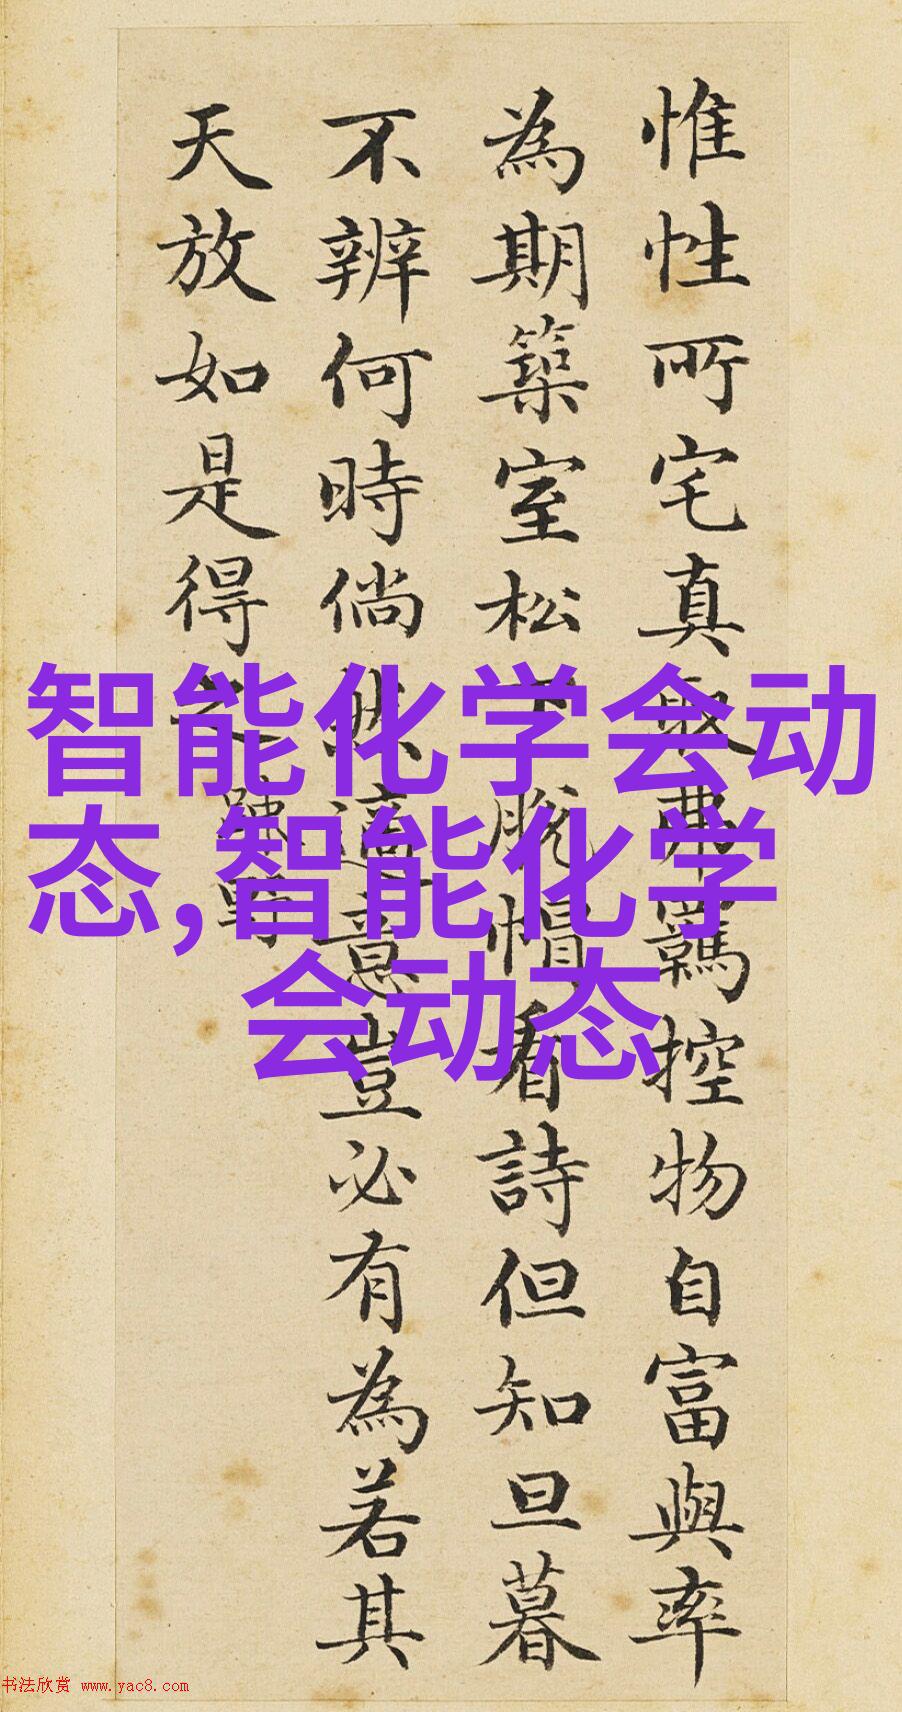 惟性所宅真取弗羈控物自富與率
為期築室松下脫帽看詩但知旦暮
不辨何時倘然適意豈必有為若其
天放如是得之
疎野
智能化学会动
态,智能化学
会动态
书法欣赏 www.yac8.com